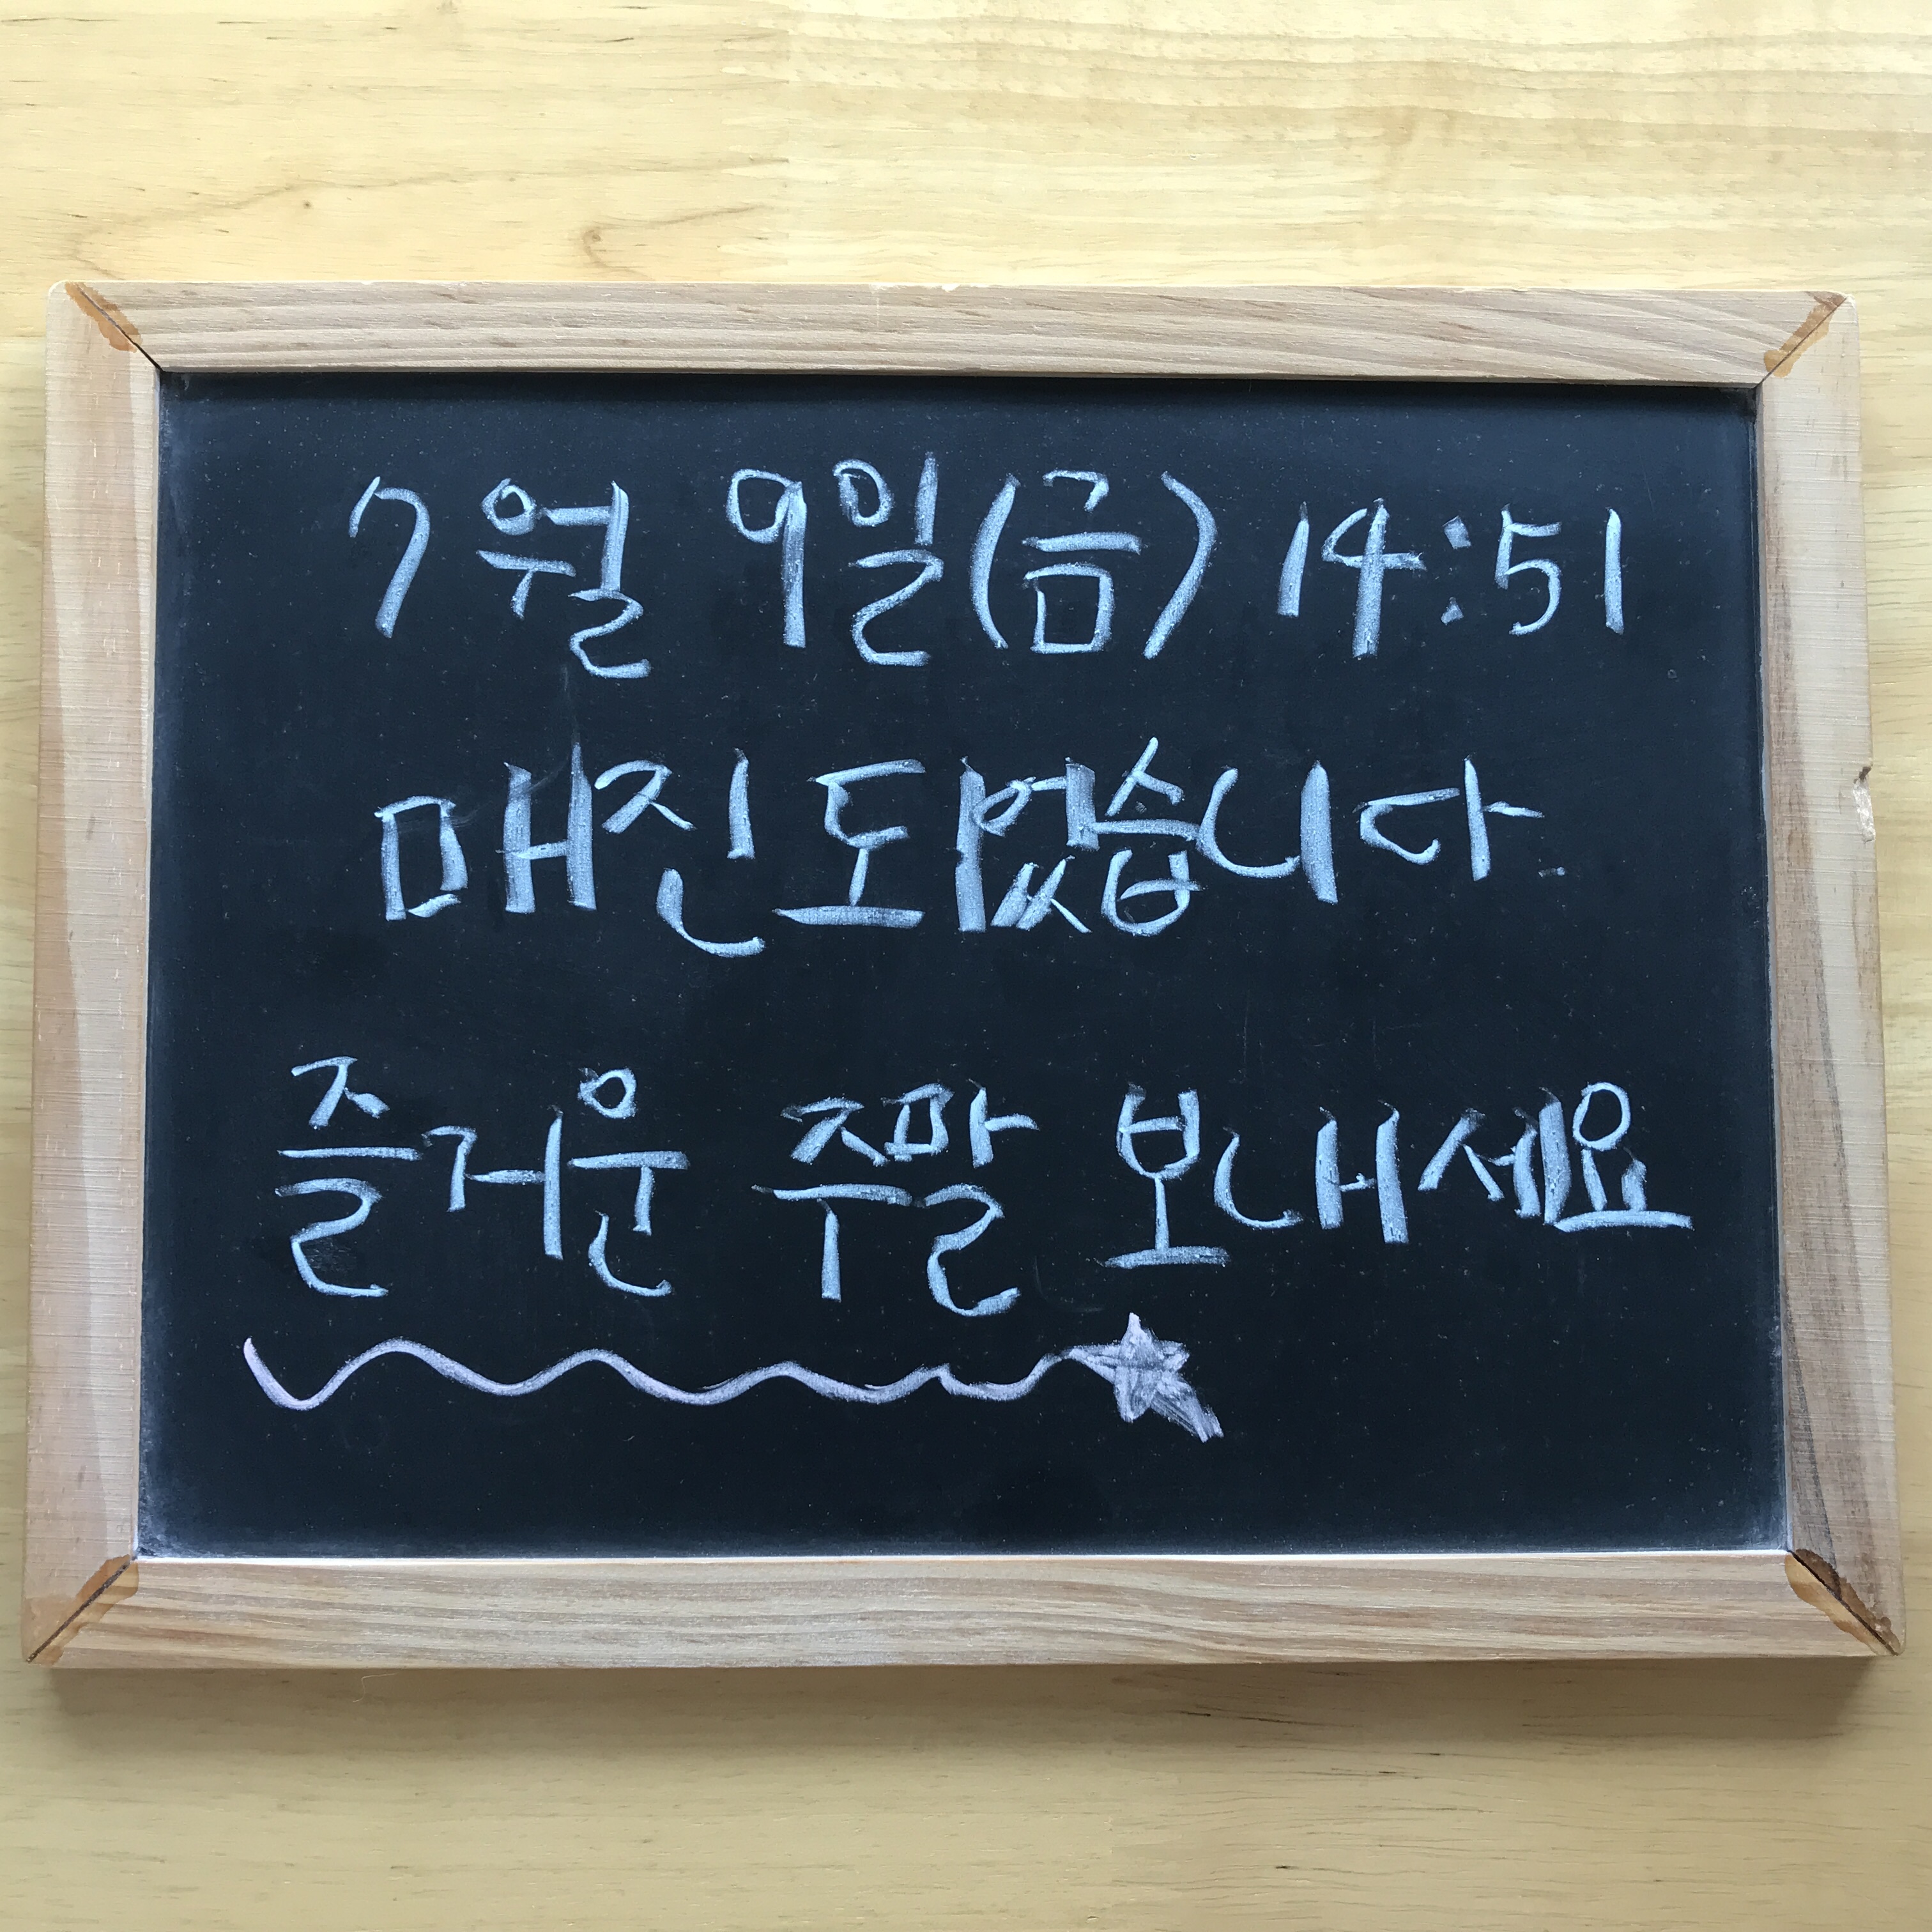 7월 9일(금) 14:51
매진 되었습니다.
즐거운 주말 보내세요